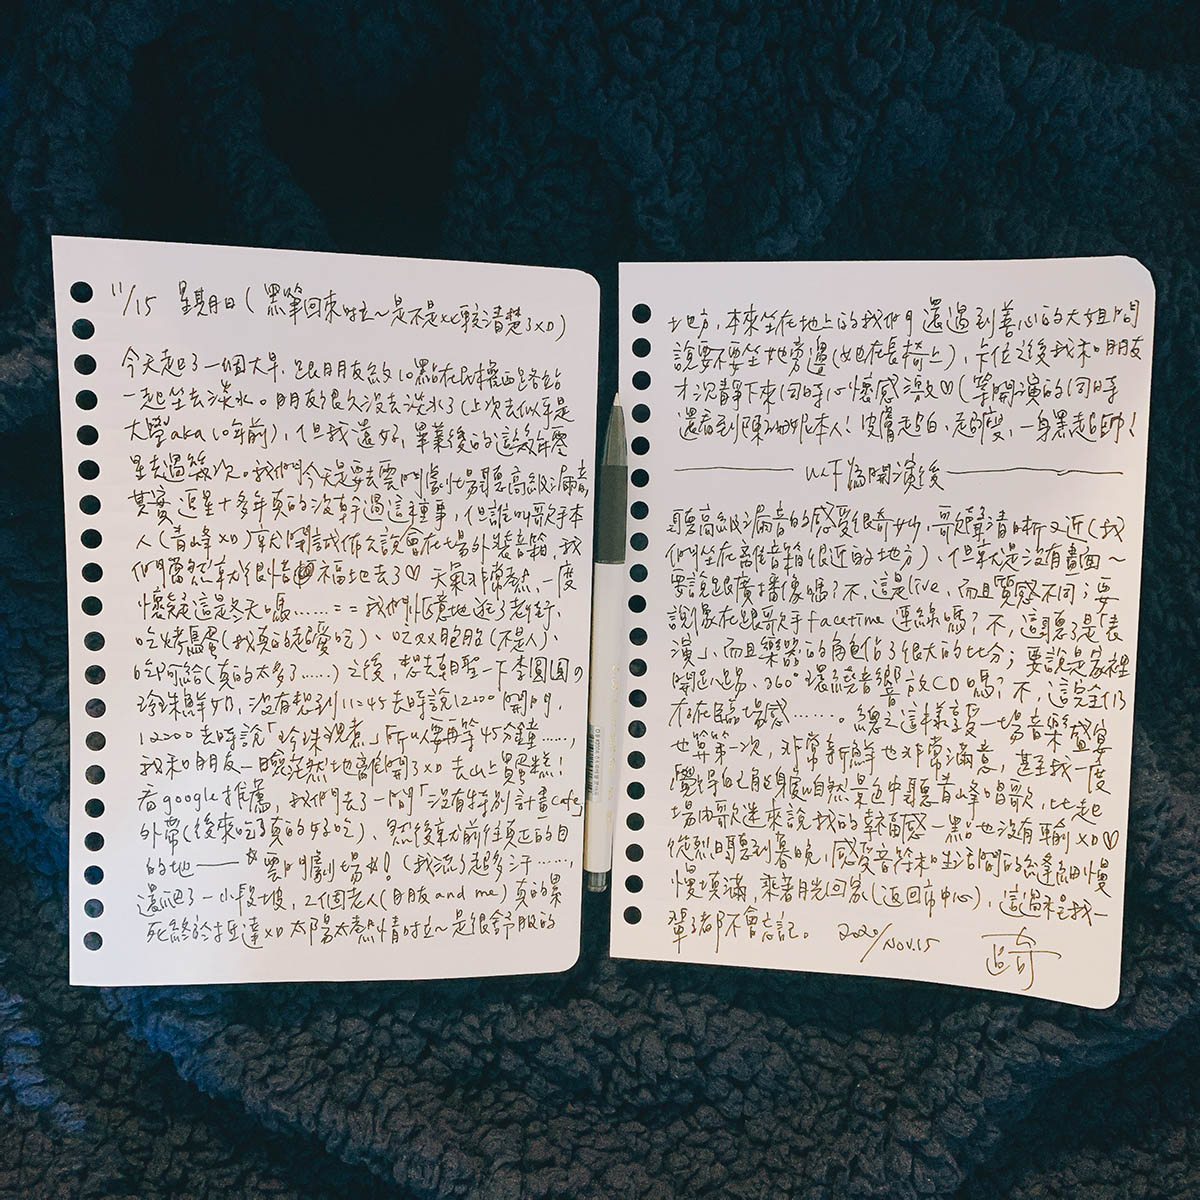 11/15 星期日(黑筆回來啦~是不是比較清楚了XD)
今天起了一個大早,跟朋友約10點在民權西路站
一起坐去淡水。朋友很久沒去淡水了(上次去似乎是
大學aka 10年前),但我還好,畢業後的這幾年零
星去過幾次。我們今天是要去雲門劇場聽高級漏音,
其實追星十多年真的沒幹過這種事,但誰叫歌手本
人(青峰XD)就開誠佈公說會在場外裝音箱,我
們當然就很惜福地去了♡ 天氣非常熱,一度
懷疑這是冬天嗎......== 我們愜意地逛了老街、
吃烤鳥蛋(我真的超愛吃)、吃XX包(不是人)、
吃阿給(真的太多了......)之後,想去朝聖一下李圓圓の
珍珠鮮奶,沒有想到11:45去時說12:00開門,
12:00去時說「珍珠現煮」所以要再等45分鐘......,
我和朋友一臉茫然地離開了XD 去山上買蛋糕!
看google推薦,我們去了一間「沒有特別計畫cafe」
外帶(後來吃了真的好吃)、然後就前往真正的目
的地——*雲門劇場*!(我流了超多汗......,
還爬了一小段坡,2個老人(朋友and me)真的累
死終於抵達XD 太陽太熱情啦~是很舒服的
地方,本來坐在地上的我們還遇到善心的大姐問
說要不要坐她旁邊(她在長椅上),卡位之後我和朋友
才沉靜下來同時心懷感激♡(等開演的同時
還看到陳珊妮本人!皮膚超白、超瘦,一身黑超帥!
以下為開演後
聽高級漏音的感受很奇妙,歌聲清晰又近(我
們坐在離音箱很近的地方),但就是沒有畫面~
要說跟廣播像嗎?不,這是live,而且質感不同;要
說像在跟歌手facetime連線嗎?不,這聽了是「表
演」,而且樂器的角色佔了很大的比分;要說是家裡
開己場、360°環繞音響放CD嗎?不,這完全仍
存在臨場感......。總之這樣享受一場音樂盛宴
也算第一次,非常新鮮也非常滿意,甚至我一度
覺得自己能身處自然景色中聽青峰唱歌,比起
場內歌迷來說我的幸福感一點也沒有輸XD♡
從烈陽聽到暮晚,感受音符和生活間的縫細慢
慢填滿,乘著月光回家(返回市中心),這過程我一
輩子都不會忘記。 2020/NOV.15